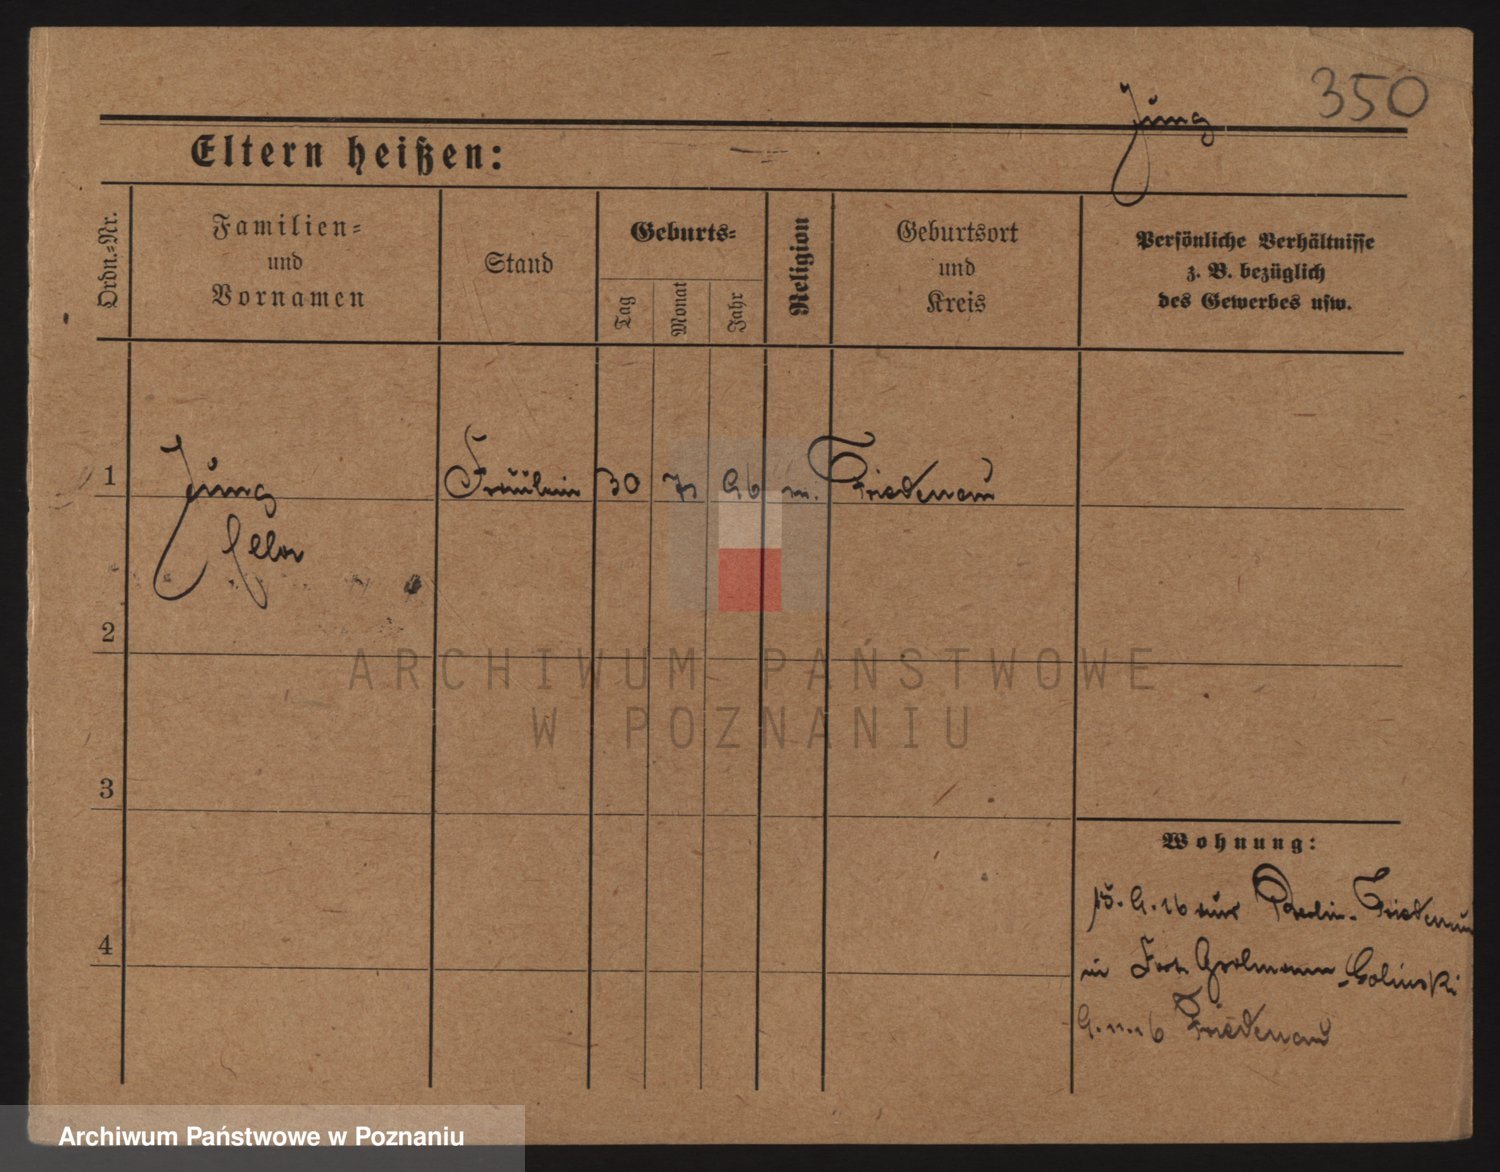 350
Jung
Eltern heißen:
Ordn.-Nr.
Familien-
und
Vornamen
Stand
Geburts-
Tag
Monat
Jahr
Religion
Geburtsort
und
Kreis
Persönliche Verhältnisse
z. B. bezüglich
des Gewerbes usw.
1
Jung
Fräulein
30
96
Friedenau
2
ARCHIWUM PAŃSTWOWE
W POZNANIU
3
Wohnung:
15.9.16 aus Berlin-Friedenau
in Fort Grolman
4
9.11.16 Friedenau
Archiwum Państwowe w Poznaniu